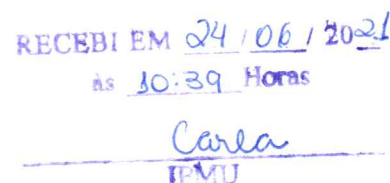 RECEBI EM 24 / 06 / 2021
às 10:39 Horas
Carla
IPMU